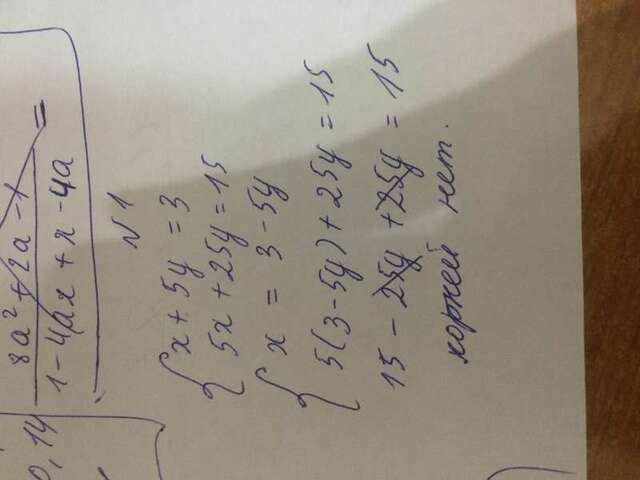 0,14
8a² + 2a - 1
1 - 4ax + x - 4a
=
N1
x + 5y = 3
5x + 25y = 15
x = 3 - 5y
5(3 - 5y) + 25y = 15
15 - 25y + 25y = 15
корней нет.